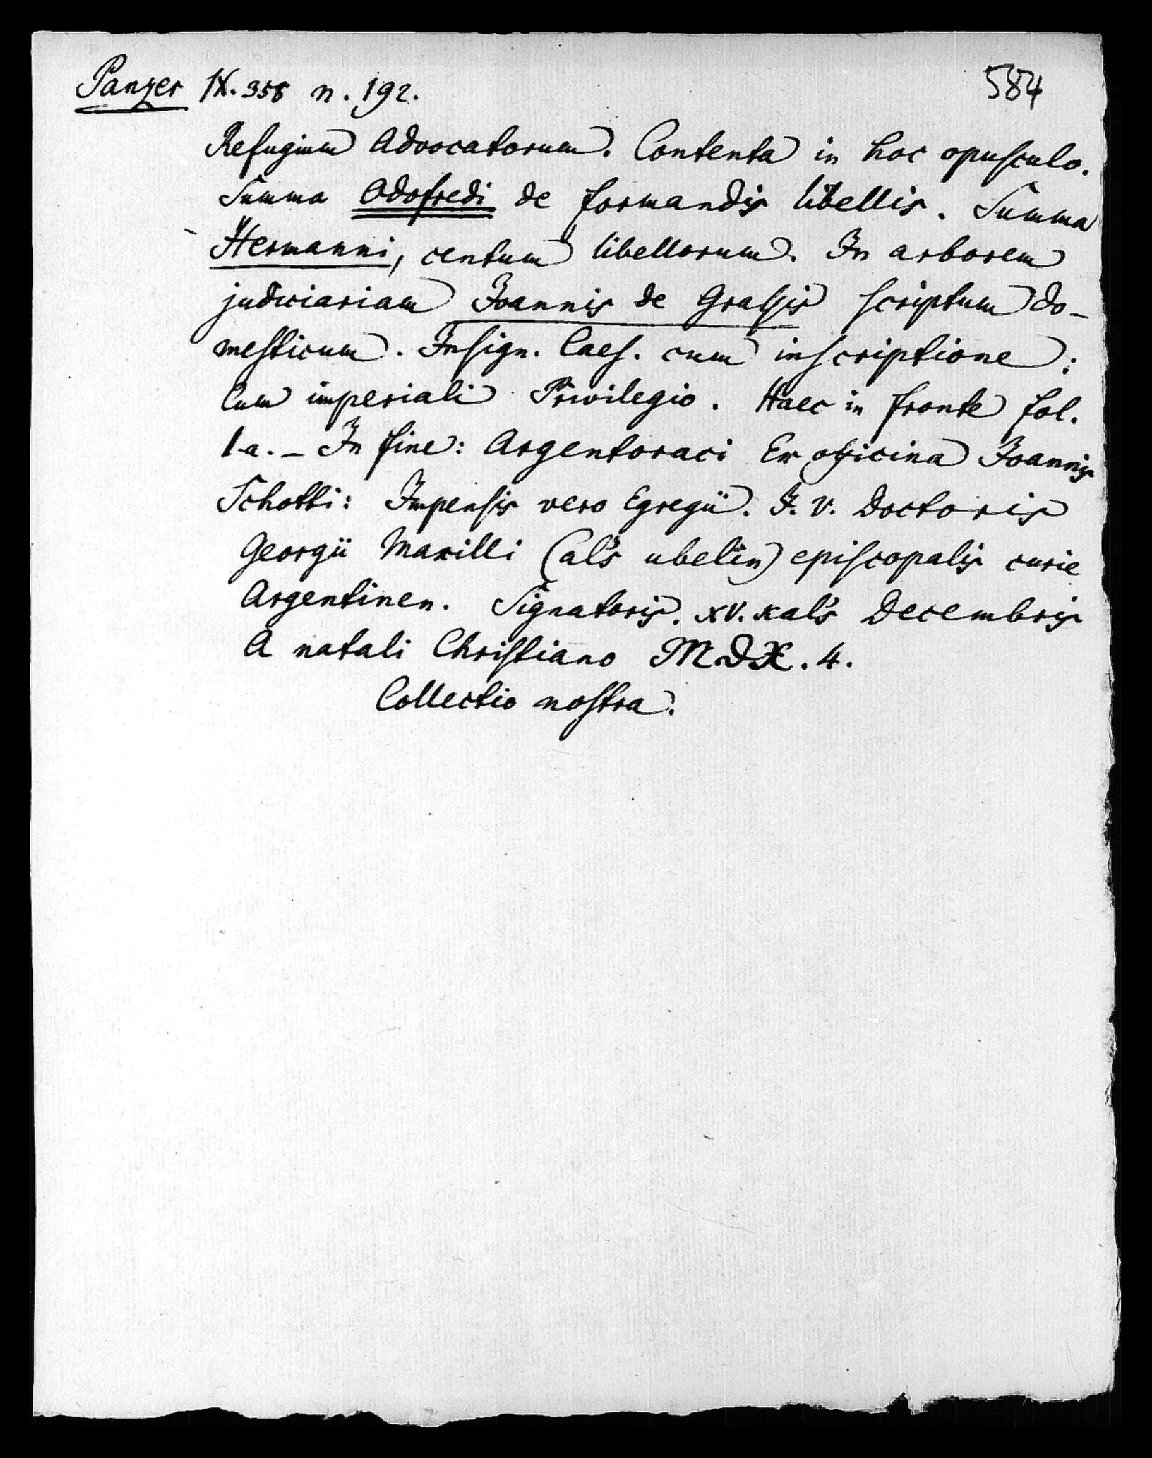 584
Panzer IX. 358 n. 192.
Refugium Advocatorum. Contenta in hoc opusculo.
Summa Odofredi de formandis libellis. Summa
Hermanni, centum libellorum. In arborem
judiciariam Joannis de Grassis scriptum do-
mesticum. Insign. Caes. cum inscriptione:
Cum imperiali Privilegio. Haec in fronte fol.
1.a. – In fine: Argentoraci Ex officina Joannis
Schotti: Impensis vero Egregii. J. V. Doctoris
Georgii Maxilli (als ubelin) episcopalis curie
Argentinen. Signatoris. XV. kal's Decembris
A natali Christiano MDX. 4.
Collectio nostra.